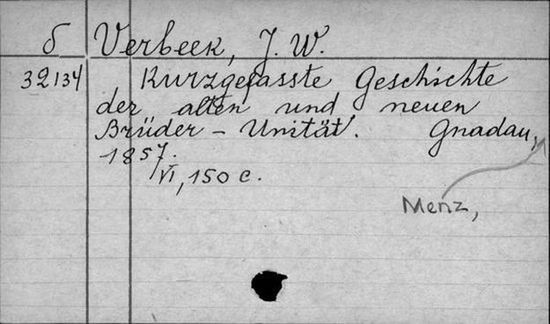 δ Verbeek, J. W.
32134 Kurzgefasste Geschichte
der alten und neuen
Brüder - Unität. Gnadau,
1857.
VI, 150 c.
Menz,